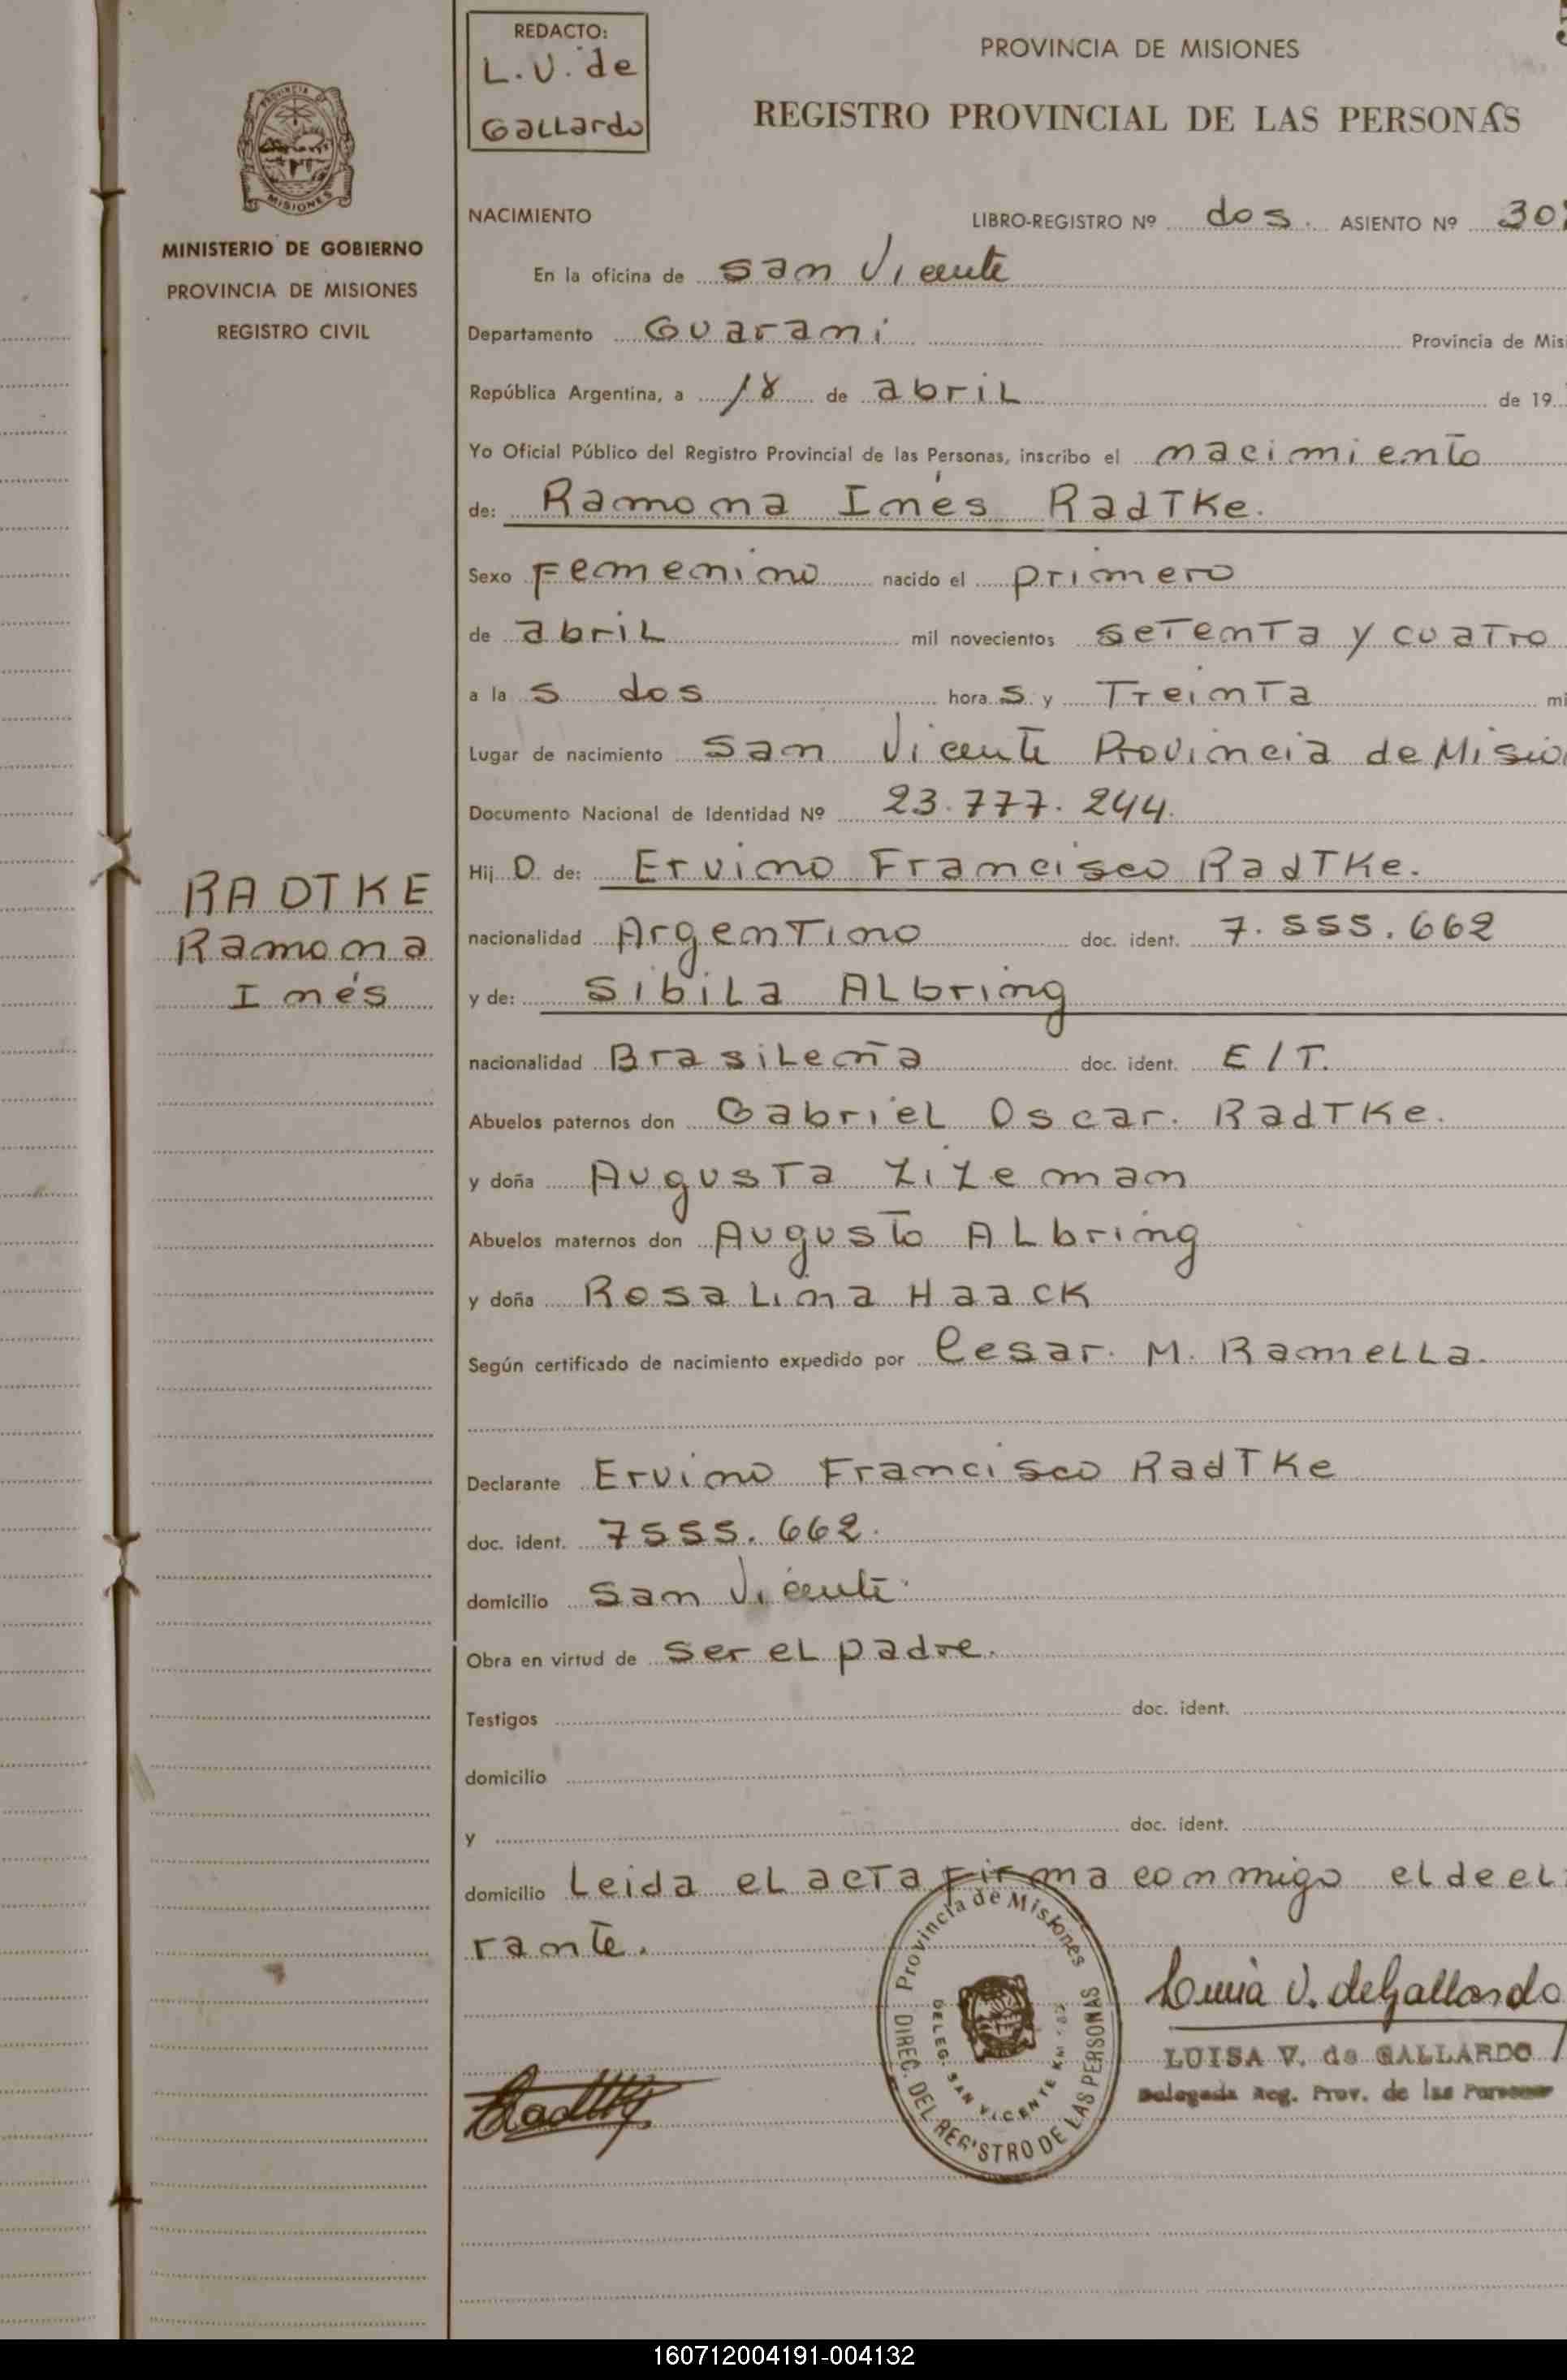 REDACTO:
L.V. de
Gallardo
PROVINCIA DE MISIONES
REGISTRO PROVINCIAL DE LAS PERSONAS
MISIONES
MINISTERIO DE GOBIERNO
PROVINCIA DE MISIONES
REGISTRO CIVIL
NACIMIENTO LIBRO-REGISTRO Nº dos. ASIENTO Nº 30
En la oficina de San Vicente
Departamento Guarani Provincia de Mis
República Argentina, a 18 de abril de 19
Yo Oficial Público del Registro Provincial de las Personas, inscribo el nacimiento
de: Ramona Inés Radtke.
Sexo Femenino nacido el primero
de abril mil novecientos setenta y cuatro
a las dos horas y Treinta mi
Lugar de nacimiento San Vicente Provincia de Misio
Documento Nacional de Identidad Nº 23.777.244.
Hij a de: Ervino Francisco Radtke.
nacionalidad Argentino doc. ident. 7.555.662
y de: Sibila Albring
nacionalidad Brasileña doc. ident. E/T.
Abuelos paternos don Gabriel Oscar. Radtke.
y doña Augusta Zizeman
Abuelos maternos don Augusto Albring
y doña Rosalina Haack
Según certificado de nacimiento expedido por Cesar. M. Ramella.
Declarante Ervino Francisco Radtke
doc. ident. 7555.662.
domicilio San Vicente.
Obra en virtud de ser el padre.
Testigos doc. ident.
domicilio
y doc. ident.
domicilio Leida el acta firma conmigo el decl
rante.
RADTKE
Ramona
Inés
Provincia de Misiones
DIREC. DEL REGISTRO DE LAS PERSONAS
DELEG. SAN VICENTE
Luisa V. de Gallardo
LUISA V. de GALLARDO
Delegada Reg. Prov. de las Personas
160712004191-004132